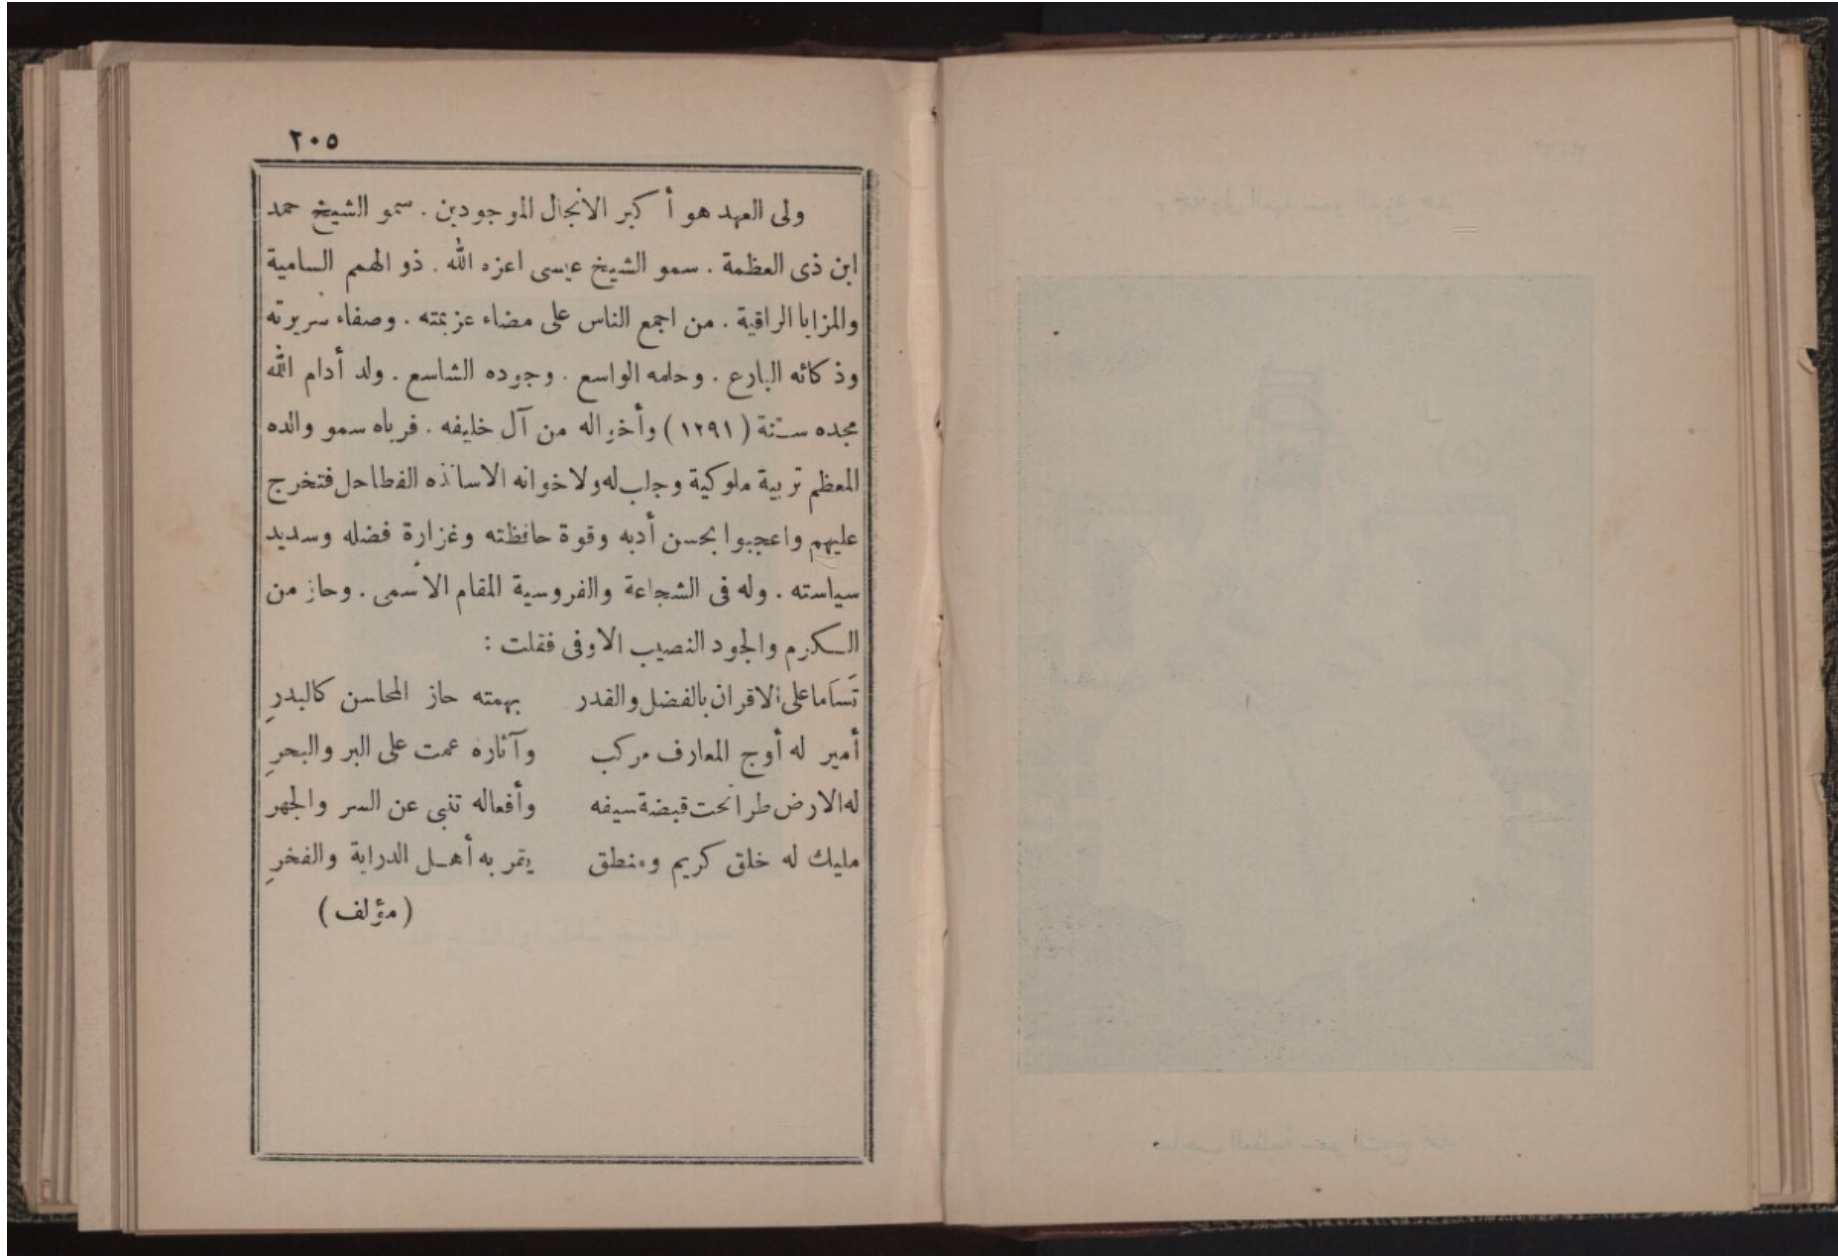 ٢٠٥
ولى العهد هو أكبر الانجال الموجودين . سمو الشيخ حمد
ابن ذى العظمة . سمو الشيخ عيسى اعزه الله . ذو الهمم السامية
والمزايا الراقية . من اجمع الناس على مضاء عزيمته . وصفاء سريرته
وذكائه البارع . وحلمه الواسع . وجوده الشاسع . ولد أدام الله
مجده سنة (١٢٩١) وأخواله من آل خليفه . فرباه سمو والده
المعظم تربية ملوكية وجلب له ولاخوانه الاساتذه الفطاحل فتخرج
عليهم واعجبوا بحسن أدبه وقوة حافظته وغزارة فضله وسديد
سياسته . وله فى الشجاعة والفروسية المقام الاسمى . وحاز من
الكرم والجود النصيب الاوفى فقلت :
تَسَاما على الاقران بالفضل والقدر بهمته حاز المحاسن كالبدرِ
أمير له أوج المعارف مركب وآثاره عمت على البر والبحرِ
له الارض طرا تحت قبضة سيفه وأفعاله تنبى عن السر والجهر
مليك له خلق كريم ومنطق يقر به أهل الدراية والفخرِ
(مؤلف)